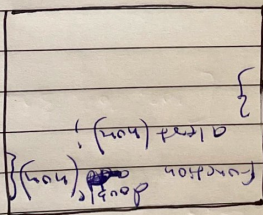 function double (num) {
alert (num);
}